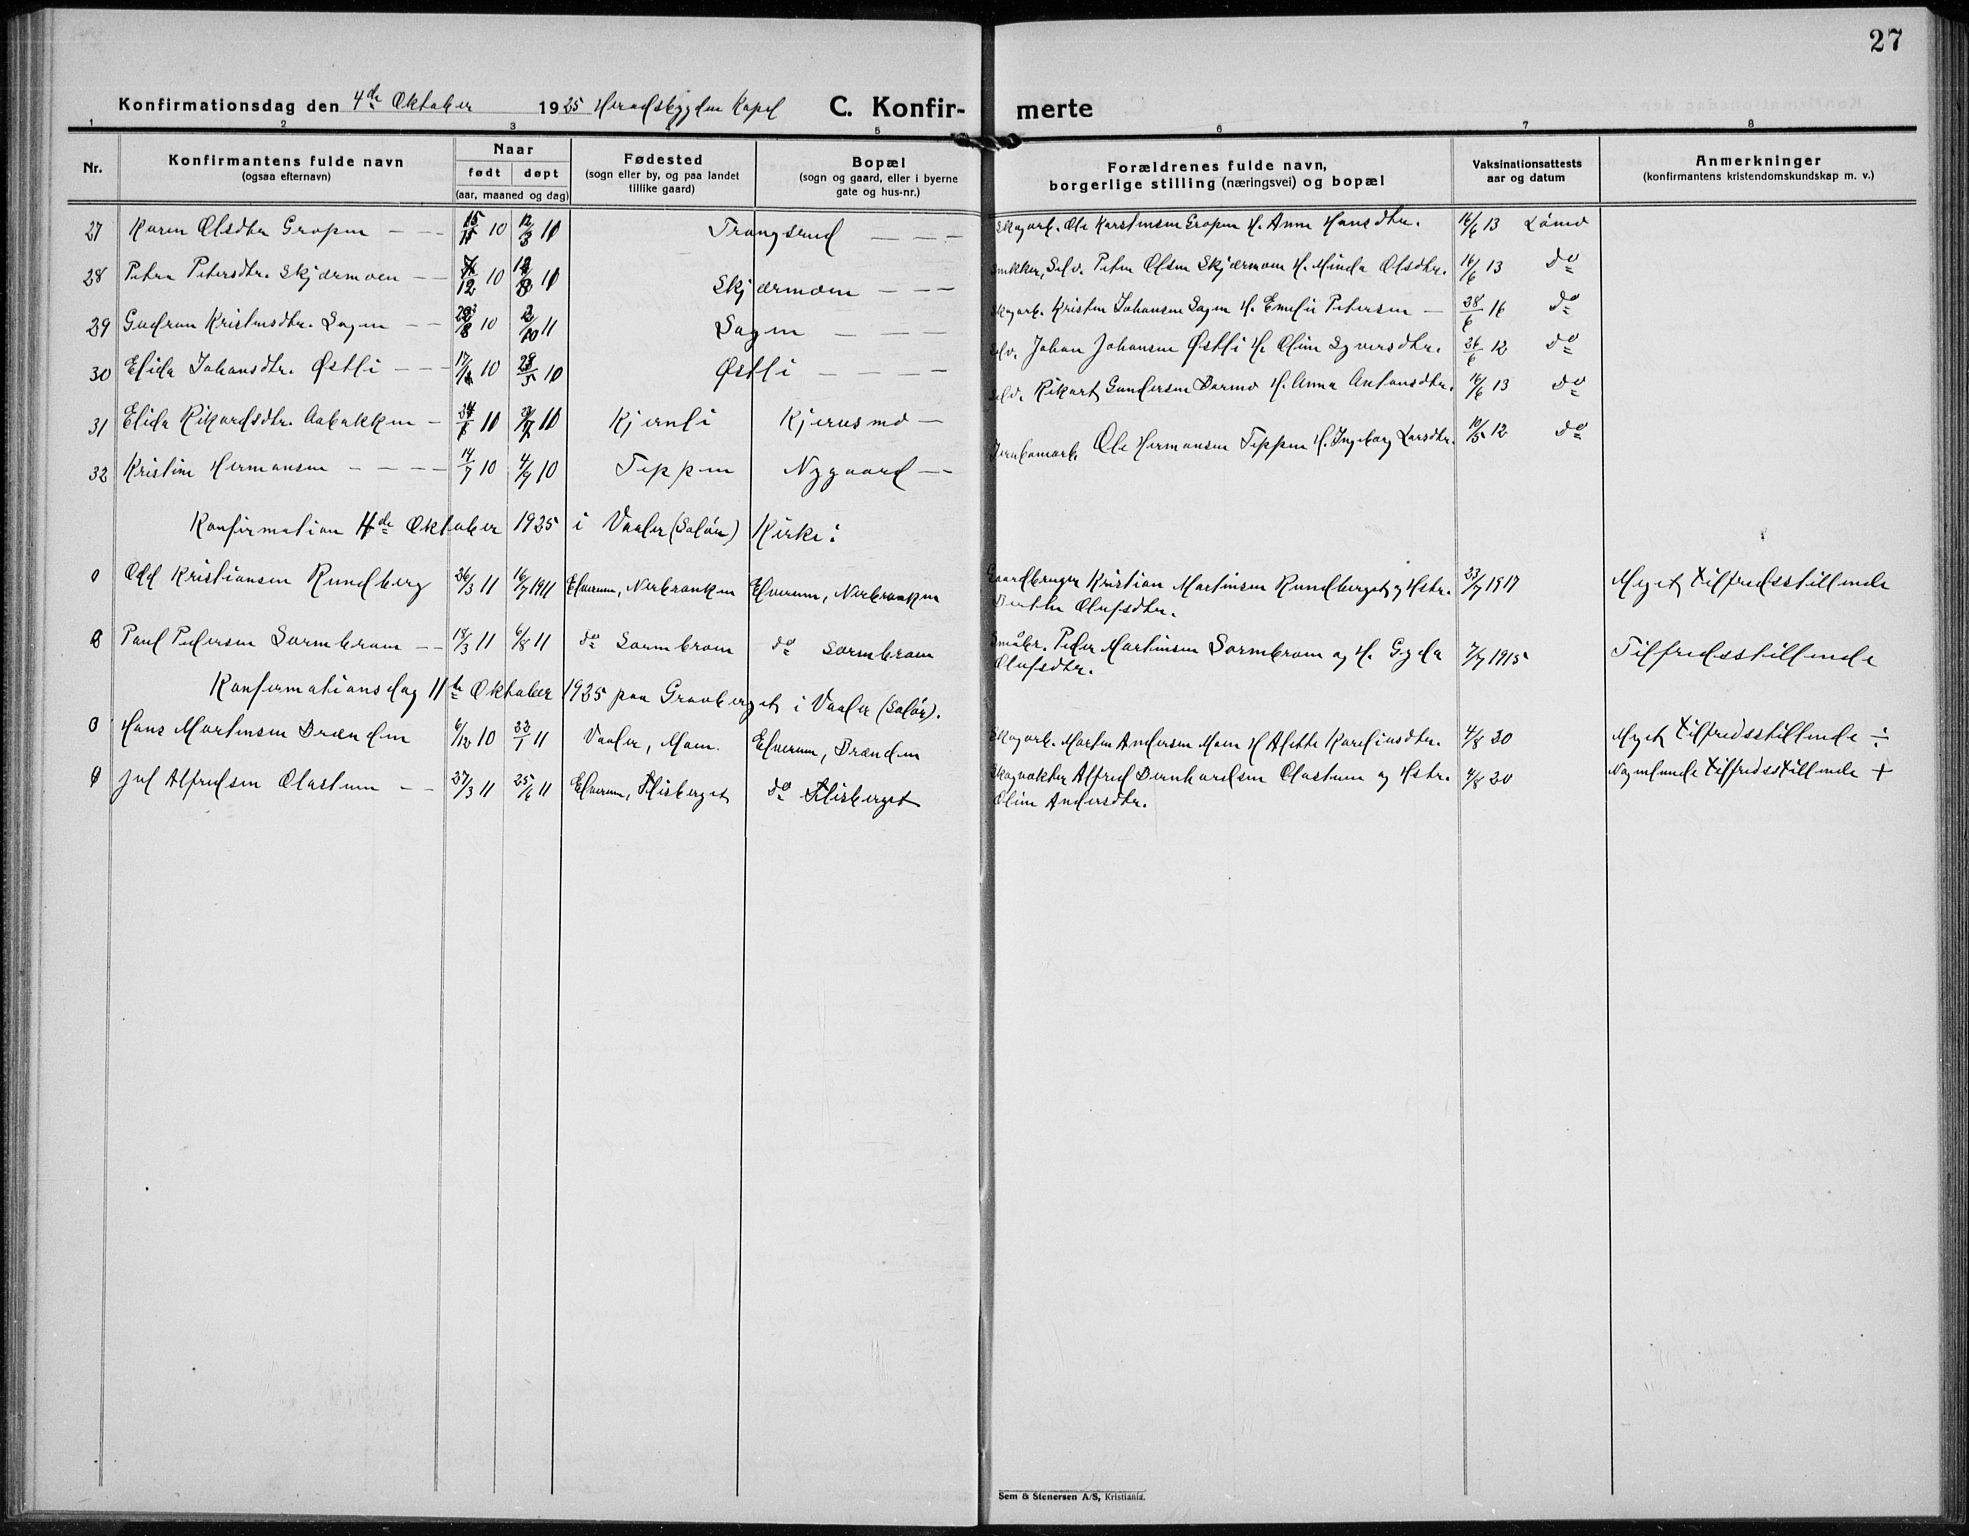 27
Konfirmationsdag den 4de Oktober 1925 Heradsbygden Kapel C. Konfir- merte
1 2 3 4 5 6 7 8
Nr. Konfirmantens fulde navn (ogsaa efternavn) Naar født døpt (aar, maaned og dag) Fødested (sogn eller by, og paa landet tillike gaard) Bopæl (sogn og gaard, eller i byerne gate og hus-nr.) Forældrenes fulde navn, borgerlige stilling (næringsvei) og bopæl Vaksinationsattests aar og datum Anmerkninger (konfirmantens kristendomskundskap m. v.)
27 Karen Olsdtr Gropen — — 10 10 Trangsrud — — — Skogarb. Ole Karstensen Gropen H. Anne Hansdtr. 14/6 13 Lömo
28 Petra Petersdtr. Skjærmoen — — 10 10 Skjærmoen — — — Snekker, Selv. Peter Olsen Skjærmoen H. Minda Olsdtr. 14/6 13 do
29 Gudrun Kristensdtr. Sagen — — 10 11 Sagen — — — Skogarb. Kristen Johansen Sagen H. Emelie Petersen — 28/6 16 do
30 Elida Johansdtr. Østli — — — 10 10 Østli — — — — Selv. Johan Johansen Østli H. Oline Syversdtr. 26/6 12 do
31 Elida Rikardsdtr. Aabakken — 10 10 Kjernli Kjernsmo — Selv. Rikart Gundersen Dormo H. Anna Antonsdtr. 14/6 13 do
32 Kristine Hermansen — — — — 14/7 10 4/9 10 Teppen Nygaard — — Ole Hermansen Teppen H. Ingeborg Larsdtr. 10/5 12 do
Konfirmation 4de Oktober 1925 i Vaaler (Solör) Kirke:
Odd Kristiansen Rundberg 26/3 11 16/7 1911 Elverum, Nerbraaken Elverum, Nerbraaken Gaardbruger Kristian Martinsen Rundberget og Hstr. 23/7 1917 Meget tilfredsstillende
Berthe Olufsdtr.
Paul Pedersen Sormbrom — — 18/3 11 6/8 11 do Sormbrom do Sormbrom Småbr. Peder Martinsen Sormbrom og H. Gyda 7/7 1915 Tilfredsstillende
Olufsdtr.
Konfirmationsdag 11te Oktober 1925 paa Gravberget i Vaaler (Solör).
Hans Martinsen Brænden 6/12 10 22/1 11 Vaaler, Moen. Elverum, Brænden Skogarb. Martin Andersen Moen H Alette Kareliusdtr. 4/8 20 Meget tilfredsstillende ÷
Jul Alfredsen Olastuen — — 27/3 11 25/6 11 Elverum, Flisberget do Flisberget Skogvokter Alfred Bernhardsen Olastuen og Hstr. 4/8 20 Nogenlunde tilfredsstillende +
Oline Andersdtr.
Sem & Stenersen A/S, Kristiania.